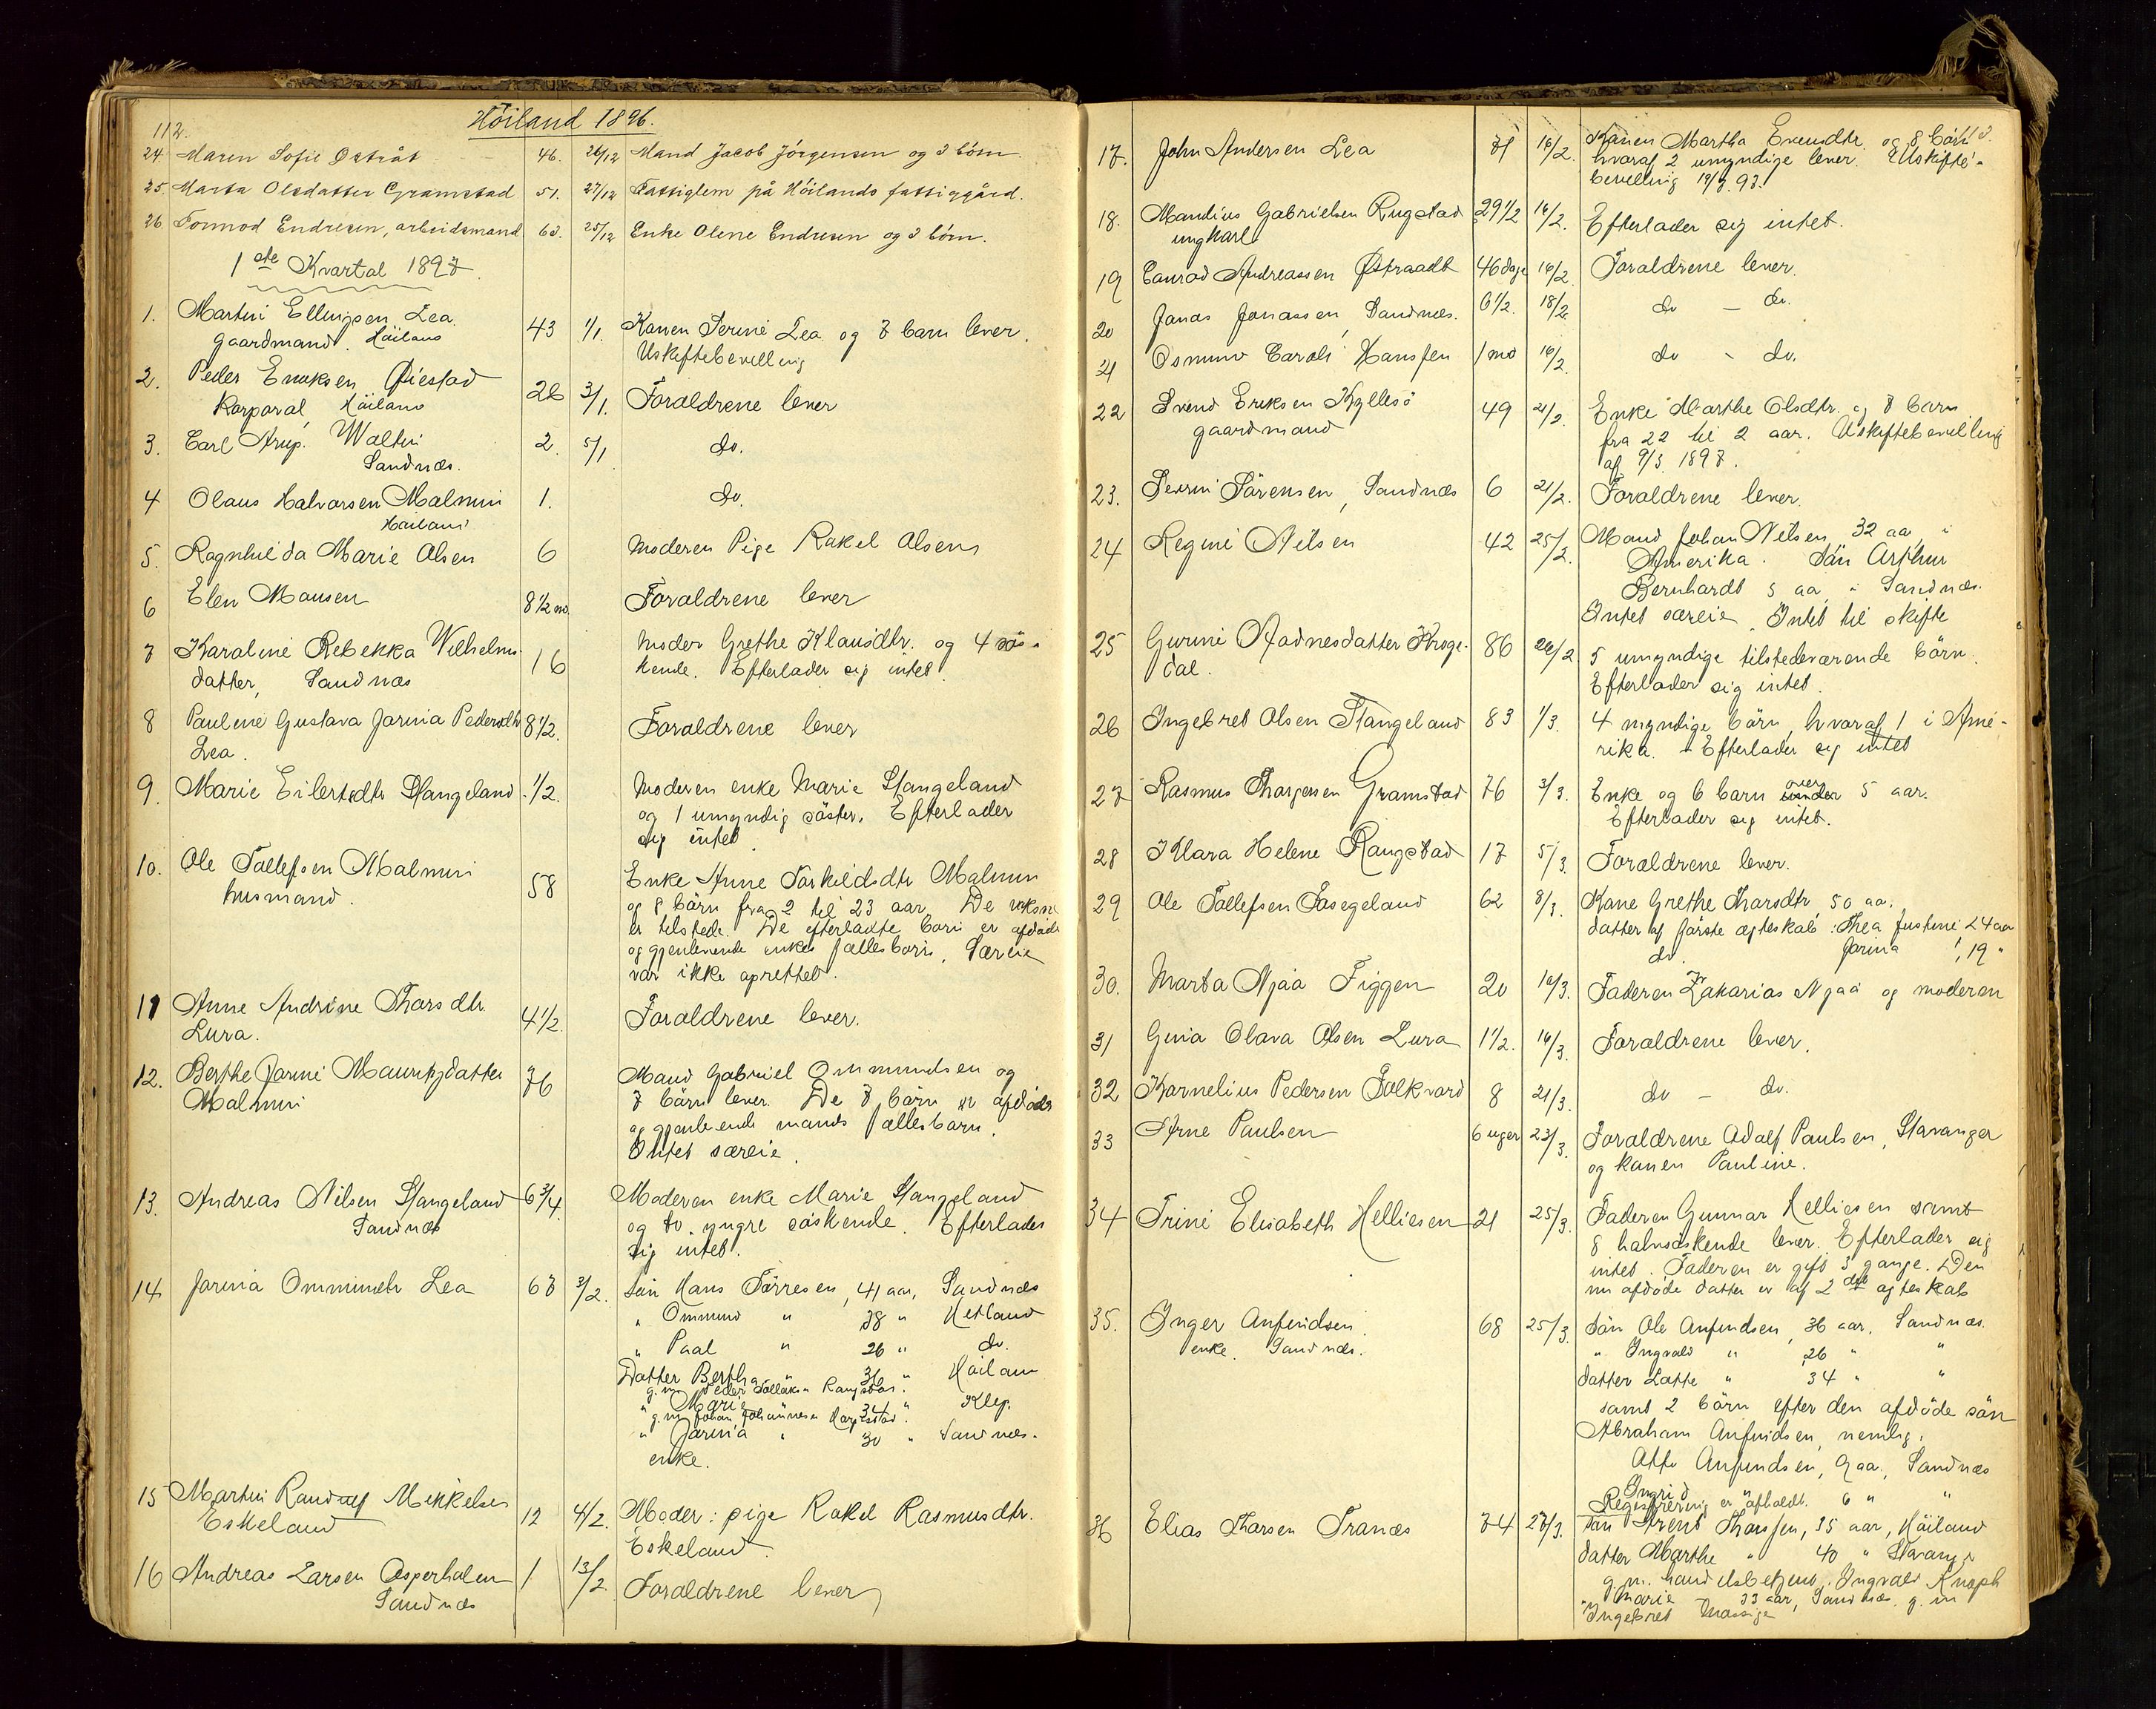 112.
Höiland 1896.
24 Maren Sofie Østråt 46. 26/12 Mand Jacob Jörgensen og 3 börn.
25. Marta Olsdatter Gramstad 51. 27/12 Fattiglem på Höilands fattiggård.
26 Tonnod Endresen, arbeidsmand 63. 25/12 Enke Olene Endresen og 3 börn.
1ste Kvartal 1897.
1. Martin Ellingsen Lea 43 1/1. Konen Serine Lea og 7 barn lever.
gaardmand. Höiland Uskiftebevilling
2. Peder Enoksen Øiestad 26 3/1. Forældrene lever
Korporal, Höiland
3. Carl Arup. Waltin 2. 5/1 do.
Sandnæs.
4 Olaus Halvorsen Malmin 1. do.
Höiland
5. Ragnhilda Marie Olsen 6 Moderen Pige Rakel Olsen
6 Elen Mausen 8 1/2 mo. Forældrene lever
7 Karoline Rebekka Wilhelms- 16 Moder Grethe Klausdtr. og 4 sös-
datter, Sandnæs kende. Efterlader sig intet.
8 Pauline Gustava Jorina Pedersdtr 8 1/2. Forældrene lever
Lea.
9. Marie Eilertsdtr Stangeland 1/2. Moderen enke Marie Stangeland
og 1 umyndig söster. Efterlader
sig intet.
10. Ole Tollefsen Malmin 58 Enke Anne Torkildsdtr Malmin
husmand. og 8 börn fra 2 til 23 aar. De voksne
er tilstede. De efterladte börn er afdödes
og gjenlevende enkes fællesbörn. Særeie
var ikke oprettet.
11 Anne Andrine Thorsdtr. 4 1/2. Forældrene lever.
Lura.
12. Berthe Jorine Mauritzdatter 76 Mand Gabriel Ommundsen og
Malmin 7 börn lever. De 7 börn er afdödes
og gjenlevende mands fællesbarn.
Intet særeie.
13. Andreas Nilsen Stangeland 6 3/4. Moderen enke Marie Stangeland
Sandnæs og to yngre söskende. Efterlader
sig intet.
14 Jorina Ommundtr Lea 67 3/2. Sön Hans Törresen, 41 aar, Sandnæs
" Ommund " 38 " Hetland
" Paal " 26 " do.
Datter Bertha " 36 " Höiland
g.m. Peder Tollaksen Rangstad.
" Marie 34 " Klep.
g.m. Johan Johannesen
" Jorina " 30 " Sandnæs.
enke.
15 Martin Randulf Mikkelsen 12 4/2. Moder: pige Rakel Rasmusdtr.
Eskeland Eskeland.
16 Andreas Larsen Asperholen 1 13/2. Forældrene lever
Sandnæs
17. John Andersen Lea 71 16/2. Konen Martha Evendtr. og 8 börn
hvoraf 2 umyndige lever. Uskifte-
bevilling 19/3. 97.
18. Mandius Gabrielsen Rugstad 29 1/2 16/2. Efterlader sig intet.
ungkarl
19 Conrad Andreassen Østraadt 46 dage 16/2 Forældrene lever.
20 Jonas Jonassen, Sandnæs. 6 1/2. 18/2 do — do.
21 Osmund Caroli Hanssen 1 mo 16/2. do - do.
22 Svend Eriksen Kyllesö 49 21/2. Enke Marthe Olsdtr. og 7 barn
gaardmand fra 22 til 2 aar. Uskiftebevilling
af 9/3. 1897.
23. Severin Sörensen, Sandnæs 6 21/2. Forældrene lever.
24 Regine Nilsen 42 25/2. Mand Johan Nilsen, 32 aa, i
Amerika. Sön Arthur
Bernhardt 5 aa i Sandnæs.
Intet særeie. Intet til skifte
25 Gurine Aadnesdatter Kroge- 86 26/2 5 umyndige tilstedeværende börn.
dal. Efterlader sig intet.
26 Ingebret Olsen Stangeland 83 1/3. 4 myndige börn, hvoraf 1 i Ame-
rika. - Efterlader sig intet
27 Rasmus Thorgersen Gramstad 76 3/3. Enke og 6 barn over 5 aar.
Efterlader sig intet.
28 Klara Helene Rangstad 17 5/3 Forældrene lever.
29 Ole Tollefsen Fosegeland 62 8/3. Kone Grethe Thorsdtr 50 aa.
datter af förste ægteskab: Thea Justine 24 aa
do. Jorina , 19 "
30. Marta Njaa Figgen 20 16/3. Faderen Zakarias Njaa og moderen
31 Gina Olava Olsen Lura 1 1/2. 16/3. Forældrene lever.
32 Kornelius Pedersen Folkvord 8 21/3. do — do.
33 Arne Paulsen 6 uger 23/3. Forældrene Adolf Paulsen, Stavanger
og konen Pauline.
34 Trine Elisabeth Helliesen 21 25/3. Faderen Gunnar Helliesen samt
8 halvsöskende lever. Efterlader sig
intet. Faderen er gift 3 gange. Den
nu afdöde datter er af 2det ægteskab
35. Inger Anfindsen 68 25/3. Sön Ole Anfindsen, 36 aar. Sandnæs.
enke. Sandnæs. " Ingvald " 26 " "
datter Lotte " 34 " "
samt 2 börn efter den afdöde sön
Abraham Anfindsen, nemlig:
Otto Anfindsen, 9 aa., Sandnæs
Ingrid " 6 " "
Registrering er afholdt.
36 Elias Thorsen Tranæs 74 27/3. Sön Arent Thorssen, 35 aar, Höiland
datter Marthe " 40 " Stavanger
g.m. handelsbetjent Ingvald Knoph
" Marie — 33 aar, Sandnæs. g.m.
Ingebret